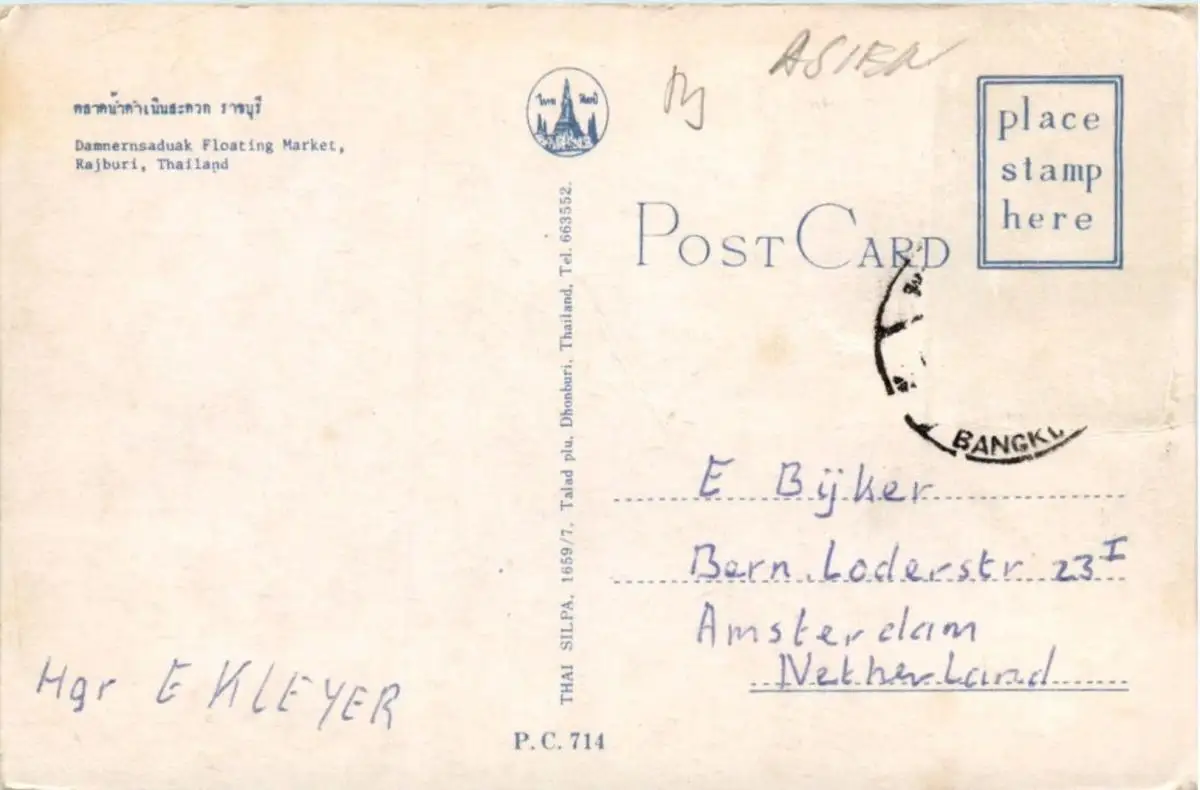 ตลาดน้ำดำเนินสะดวก ราชบุรี
Damnernsaduak Floating Market,
Rajburi, Thailand
ไทย ศิลป์
THAI SILPA, 1659/7, Talad plu, Dhonburi, Thailand, Tel. 663552.
P.C. 714
Hgr E KLEYER
ASIEN
place
stamp
here
POST CARD
BANGK
E Bijker
Bern. Loderstr 23 I
Amsterdam
Netherland